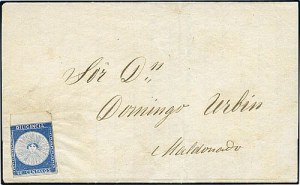 Sör Dⁿ
Domingo Urbin
Maldonado
DILIGENCIA
60 CENTAVOS